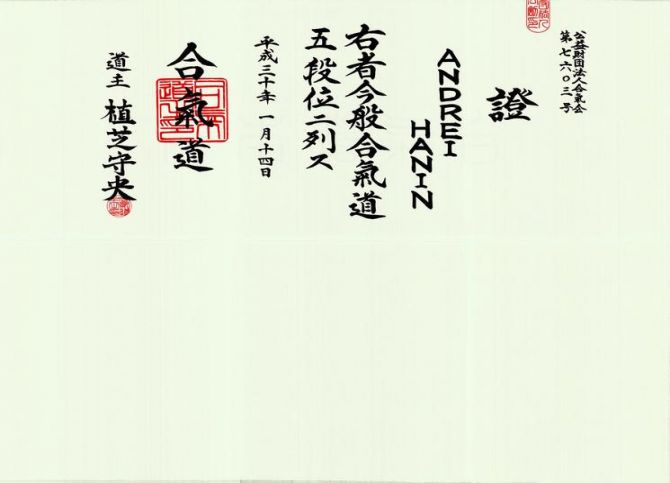 公益財団法人合氣会
第七六〇三一号
證
ANDREI
HANIN
右者今般合氣道
五段位ニ列ス
平成三十年一月十四日
合氣道
道主 植芝守央